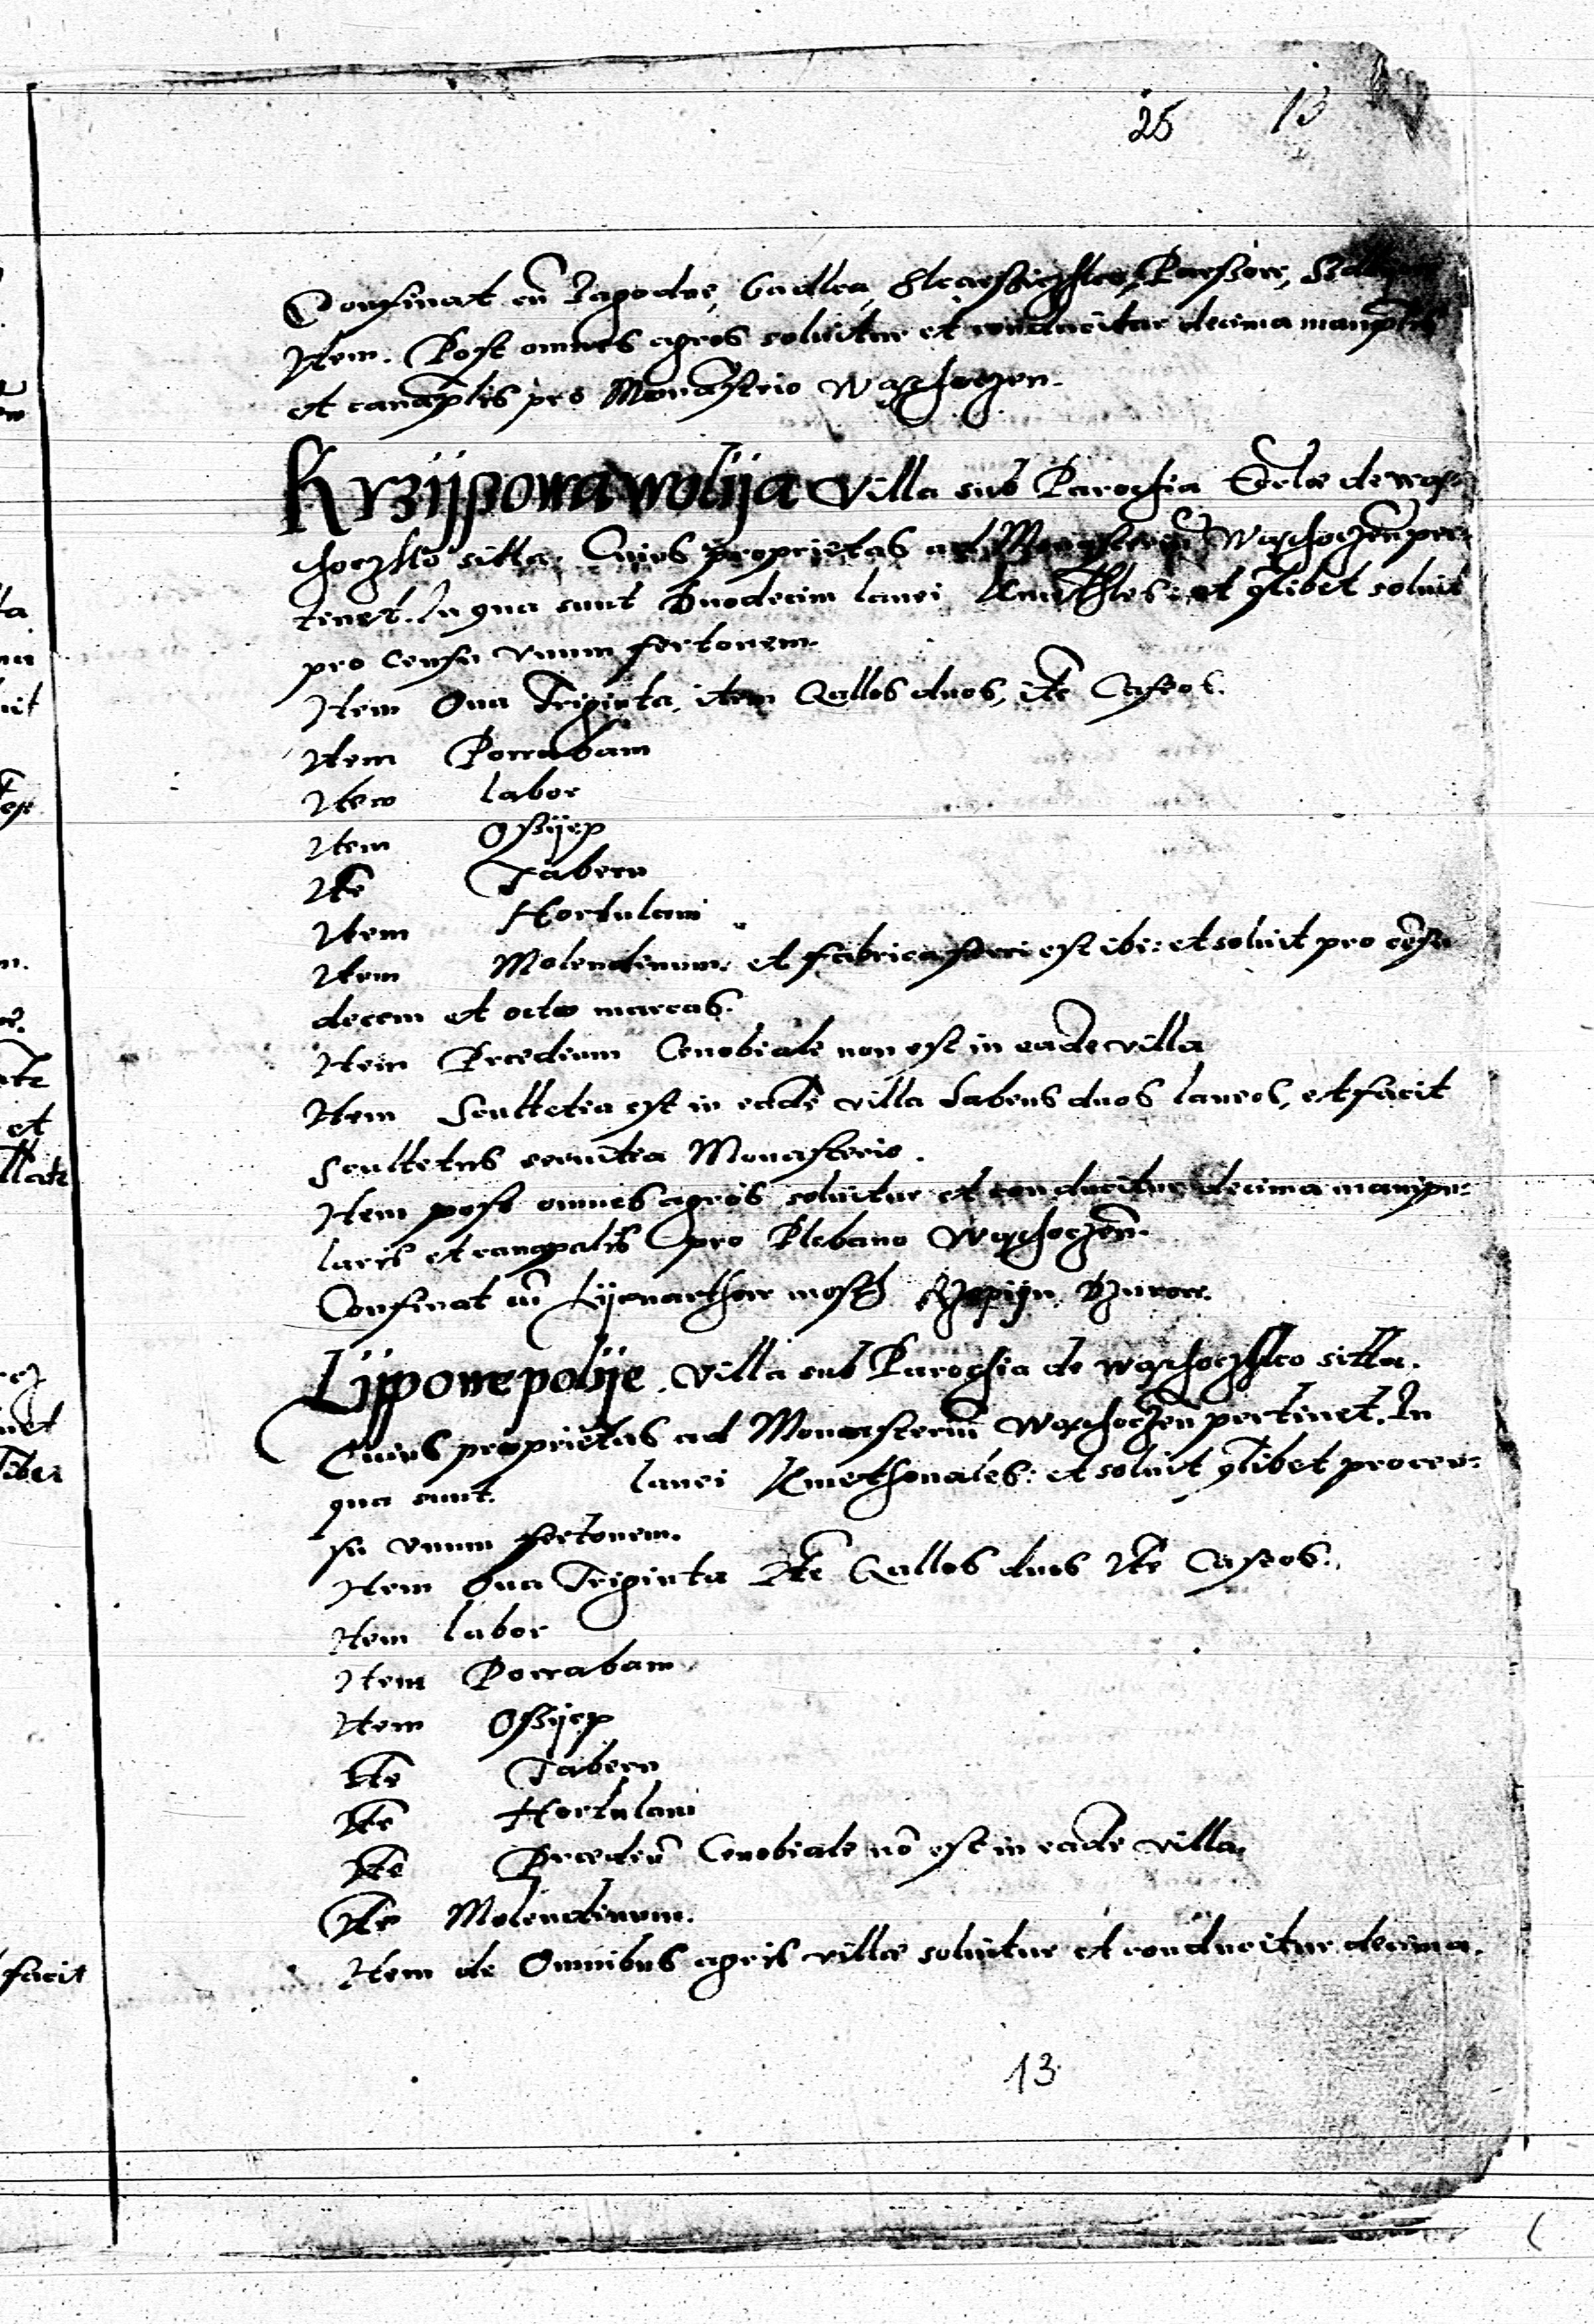 25 13
Confinat cū Jagodne, Gadka,
Item. Post omnes agros soluitur et conducitur decima
et canaplis pro Monastrio Wąchoczen.
Krzijpowa wolija Villa sub Parochia Ecclæ de wąs-
choczko sitta. Cuius proprietas ad Monasteriū Wąchoczen̄ per-
tinet. In qua sunt Duodecim lanei et qlibet soluit
pro censu vnum fertonem.
Item Oua Triginta, item Gallos duos, itē Caseos.
Item Porrabam
Item labor
Item Oßijep
Itē Tabern
Item Hortulani
Item Molendinum et fabrica ferri est ibi: et soluit pro cēsu
decem et octo marcas.
Item Prædium Cenobiale non est in eadē villa
Item Scultetia est in eadē villa habens duos laneos, et facit
Scultetus seruitia Monasterio.
Item post omnes agros soluitur et conducitur decima manipu-
laris et canapalis pro Plebano Wąchoczen̄.
Confinat cū Lijenarthow mosth Dzurow.
Lijpowe polije. Villa sub Parochia de wąschoczko sitta.
Cuius proprietas ad Monasteriū Wąschoczen̄ pertinet. In
qua sunt. lanei Kmethonales: et soluit qlibet pro cen-
su vnum fertonem.
Item Oua Triginta Itē Gallos duos Itē Caseos.
Item labor
Item Porrabam
Item Oßijep
Itē Tabern
Itē Hortulani
Itē Prædiū Cenobiale nō est in eadē villa.
Itē Molendinum.
Item de Omnibus agris villæ soluitur et conducitur decima.
13